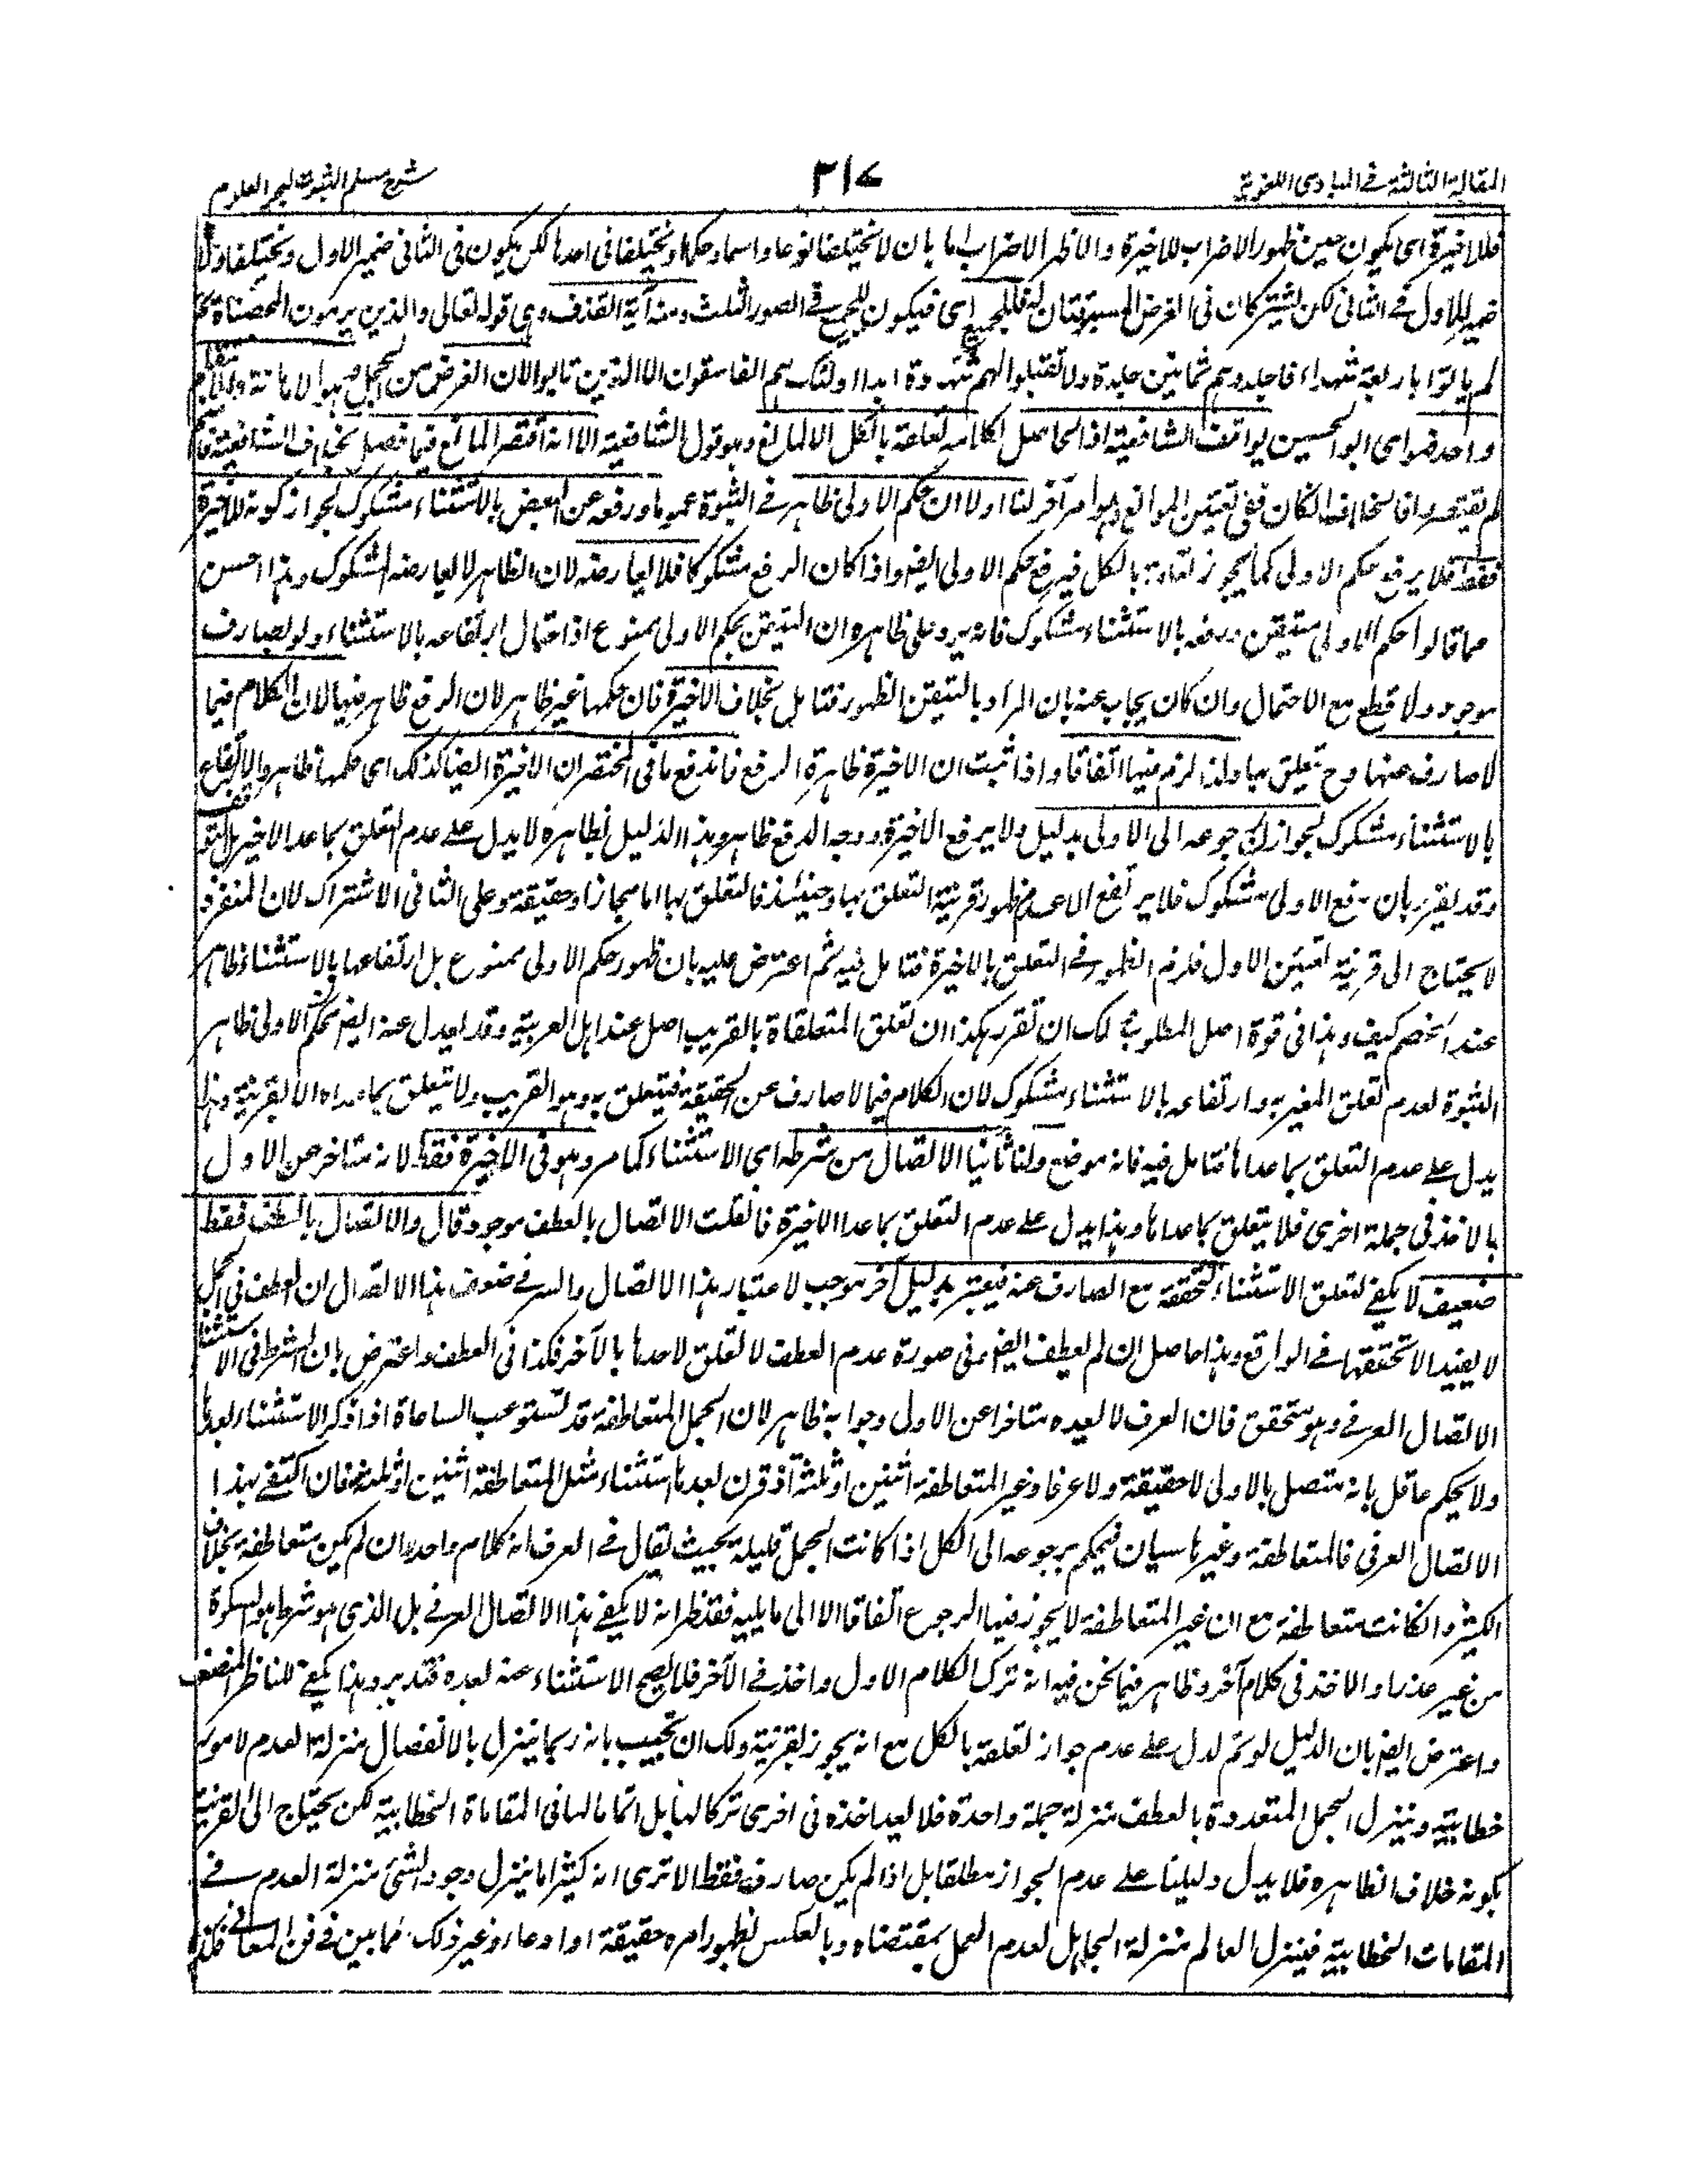 المقالة الثالثة فى المبادى اللغوية
٣١٧
شرح مسلم الثبوت لبحر العلوم
فللاخيرة اى يكون حين ظهور الاضراب للاخيرة والا ظهر الاضراب اما بان لا يختلفا نوعا واسما وحكما ويختلفا فى احدها لكن يكون فى الثانى ضمير الاول ويختلفا ولا
ضمير للاول فى الثانى لكن يشتركان فى الغرض المسوقتان له فللجميع اى فيكون للجميع فى الصور الثلث ومنه آية القذف وهى قوله تعالى والذين يرمون المحصنات ثم
لم ياتوا باربعة شهداء فاجلدوهم ثمانين جلدة ولا تقبلوا لهم شهادة ابدا اولئك هم الفاسقون الا الذين تابوا لان الغرض من الجمل هو الاهانة والانتقام
واحد فهو اى ابو الحسين يوافق الشافعية اذ الحاصل لكلامه تعلقه بالكل الا لمانع وهو قول الشافعية الا انه اقتصر المانع فيما فصل بخلاف الشافعية فانهم
لم يقتصروا فالخلاف ان كان ففى تعيين الموانع وهو امر آخر لنا اولا ان حكم الاولى ظاهر فى الثبوت عموما ورفعه عن البعض بالاستثناء مشكوك لجواز كونه للاخيرة
فقط فلا يرفع حكم الاولى كما يجوز تعلقه بالكل فيرفع حكم الاولى ايضا واذا كان الرفع مشكوكا فلا يعارضه لان الظاهر لا يعارضه المشكوك وهذا احسن
مما قالوا حكم الاولى متيقن ورفعه بالاستثناء مشكوك فانه يرد على ظاهره ان التيقن بحكم الاولى ممنوع اذ احتمال ارتفاعه بالاستثناء ولو لصارف
موجود ولا قطع مع الاحتمال وان كان يجاب عنه بان المراد بالتيقن الظهور فتامل بخلاف الاخيرة فان حكمها غير ظاهر لان الرفع ظاهر فيها لان الكلام فيما
لا صارف عنها وح تعلق بها ولذا لزم فيها اتفاقا واذا ثبت ان الاخيرة ظاهرة الرفع فاندفع ما فى المختصر ان الاخيرة ايضا كذلك اى حكمها ظاهر والارتفاع
بالاستثناء مشكوك لجواز رجوعه الى الاولى بدليل ولا يرفع الاخيرة ووجه الدفع ظاهر وهذا الدليل بظاهره لا يدل على عدم التعلق بما عدا الاخير بل التوقف
وقد يقرر بان رفع الاولى مشكوك فلا يرتفع الا عند ظهور قرينة التعلق بها وحينئذ فالتعلق بها اما مجازا او حقيقة وعلى الثانى الاشتراك لان المنفرد
لا يحتاج الى قرينة تعيين الاول فلزم الظهور فى التعلق بالاخيرة فتامل فيه ثم اعترض عليه بان ظهور حكم الاولى ممنوع بل ارتفاعها بالاستثناء ظاهر
عند الخصم كيف وهذا فى قوة اصل المطلوب ولك ان تقرر هكذا ان تعلق المتعلقات بالقريب اصل عند اهل العربية وقد يعدل عنه ايضا فحكم الاولى ظاهر
الثبوت لعدم تعلق المغير به وارتفاعه بالاستثناء مشكوك لان الكلام فيما لا صارف عن الحقيقة فيتعلق به وهو القريب ولا يتعلق بما عداه الا لقرينة وهذا
يدل على عدم التعلق بما عداها فتامل فيه فانه موضع ولنا ثانيا الاتصال من شرطه اى الاستثناء كما مر وهو فى الاخيرة فقط لانه متاخر عن الاول
بالاخذ فى جملة اخرى فلا يتعلق بما عداها وهذا يدل على عدم التعلق بما عدا الاخيرة فان قلت الاتصال بالعطف موجود قال والاتصال بالعطف فقط
ضعيف لا يكفى لتعلق الاستثناء لتحققه مع الصارف عنه فيعتبر بدليل آخر موجب لاعتبار هذا الاتصال والسر فى ضعف هذا الاتصال ان العطف فى الجمل
لا يفيد الا تحققها فى الواقع وهذا حاصل ان لم يعطف ايضا وفى صورة عدم العطف لا تعلق لاحدها بالآخر فكذا فى العطف واعترض بان الشرط فى الاستثناء
الاتصال العرفى وهو متحقق فان العرف لا يعده متاخرا عن الاولى وجوابه ظاهر لان الجمل المتعاطفة قد تستوعب الساعات اذا ذكر الاستثناء بعدها
ولا يحكم عاقل بانه متصل بالاولى لا حقيقة ولا عرفا وغير المتعاطفة اثنين او ثلثة اذ قرن بعدها استثناء مثل المتعاطفة اثنين او ثلثة فان اكتفى بهذا
الاتصال العرفى فالمتعاطفة وغيرها سيان فيحكم برجوعه الى الكل اذا كانت الجمل قليلة بحيث يقال فى العرف انه كلام واحد وان لم يكن متعاطفة بخلاف
الكثير وان كانت متعاطفة مع ان غير المتعاطفة لا يجوز فيها الرجوع اتفاقا الا الى ما يليه فقد ظهر انه لا يكفى هذا الاتصال العرفى بل الذى هو شرط هو السكوت
من غير عذر او الاخذ فى كلام آخر وظاهر فيما نحن فيه انه ترك الكلام الاول واخذ فى الآخر فلا يصح الاستثناء عنه بعده فتدبر وهذا يكفى للناظر المنصف
واعترض ايضا بان الدليل لو تم لدل على عدم جواز تعلقه بالكل مع انه يجوز لقرينة ولك ان تجيب بانه ربما ينزل بالانفصال منزلة العدم لامور
خطابية وينزل الجمل المتعددة بالعطف منزلة جملة واحدة فلا يعد اخذه فى اخرى تركا لها بل اتماما لها فى المقامات الخطابية لكن يحتاج الى القرينة
لكونه خلاف الظاهر فلا يدل دليلنا على عدم الجواز مطلقا بل اذا لم يكن صارف فقط الا ترى انه كثيرا ما ينزل وجود الشئ منزلة العدم فى
المقامات الخطابية فينزل العالم منزلة الجاهل لعدم العمل بمقتضاه وبالعكس لظهور امره حقيقة او ادعاء وغير ذلك مما بين فى فن المعانى فكذا